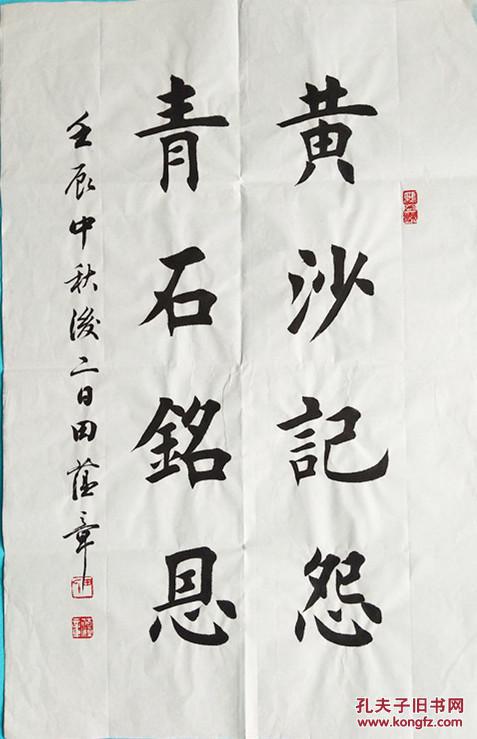 黄沙記怨
青石銘恩
壬辰中秋後二日田蕴章
孔夫子旧书网
www.kongfz.com